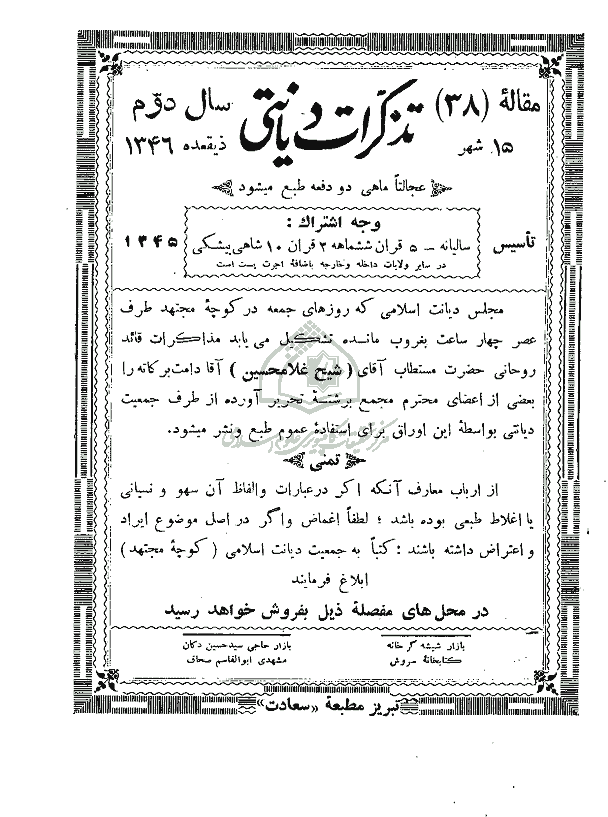 مقالهٔ (۳۸) تذکرات دیانتی سال دوّم
۱۵ شهر ذیقعده ۱۳۴۶
عجالتاً ماهی دو دفعه طبع میشود
وجه اشتراك :
تأسیس سالیانه – ۵ قران ششماهه ۲ قران ۱۰ شاهی پیشکی ۱۳۴۵
در سایر ولایات داخله وخارجه باضافهٔ اجرت پست است
مجلس دیانت اسلامی که روزهای جمعه در کوچهٔ مجتهد طرف
عصر چهار ساعت بغروب مانده تشکیل می یابد مذاکرات قائد
روحانی حضرت مستطاب آقای (شیخ غلامحسین) آقا دامت برکاته را
بعضی از اعضای محترم مجمع برشتهٔ تحریر آورده از طرف جمعیت
دیانتی بواسطهٔ این اوراق برای استفادهٔ عموم طبع ونشر میشود.
تمنی
از ارباب معارف آنکه اکر درعبارات والفاظ آن سهو و نسیانی
یا اغلاط طبعی بوده باشد ؛ لطفاً اغماض واگر در اصل موضوع ایراد
و اعتراض داشته باشند : کتباً به جمعیت دیانت اسلامی (کوچهٔ مجتهد)
ابلاغ فرمایند
در محل های مفصلهٔ ذیل بفروش خواهد رسید
بازار شیشه کر خانه بازار حاجی سید حسین دکان
کتابخانهٔ سروش مشهدی ابوالقاسم صحاف
تبریز مطبعهٔ «سعادت»